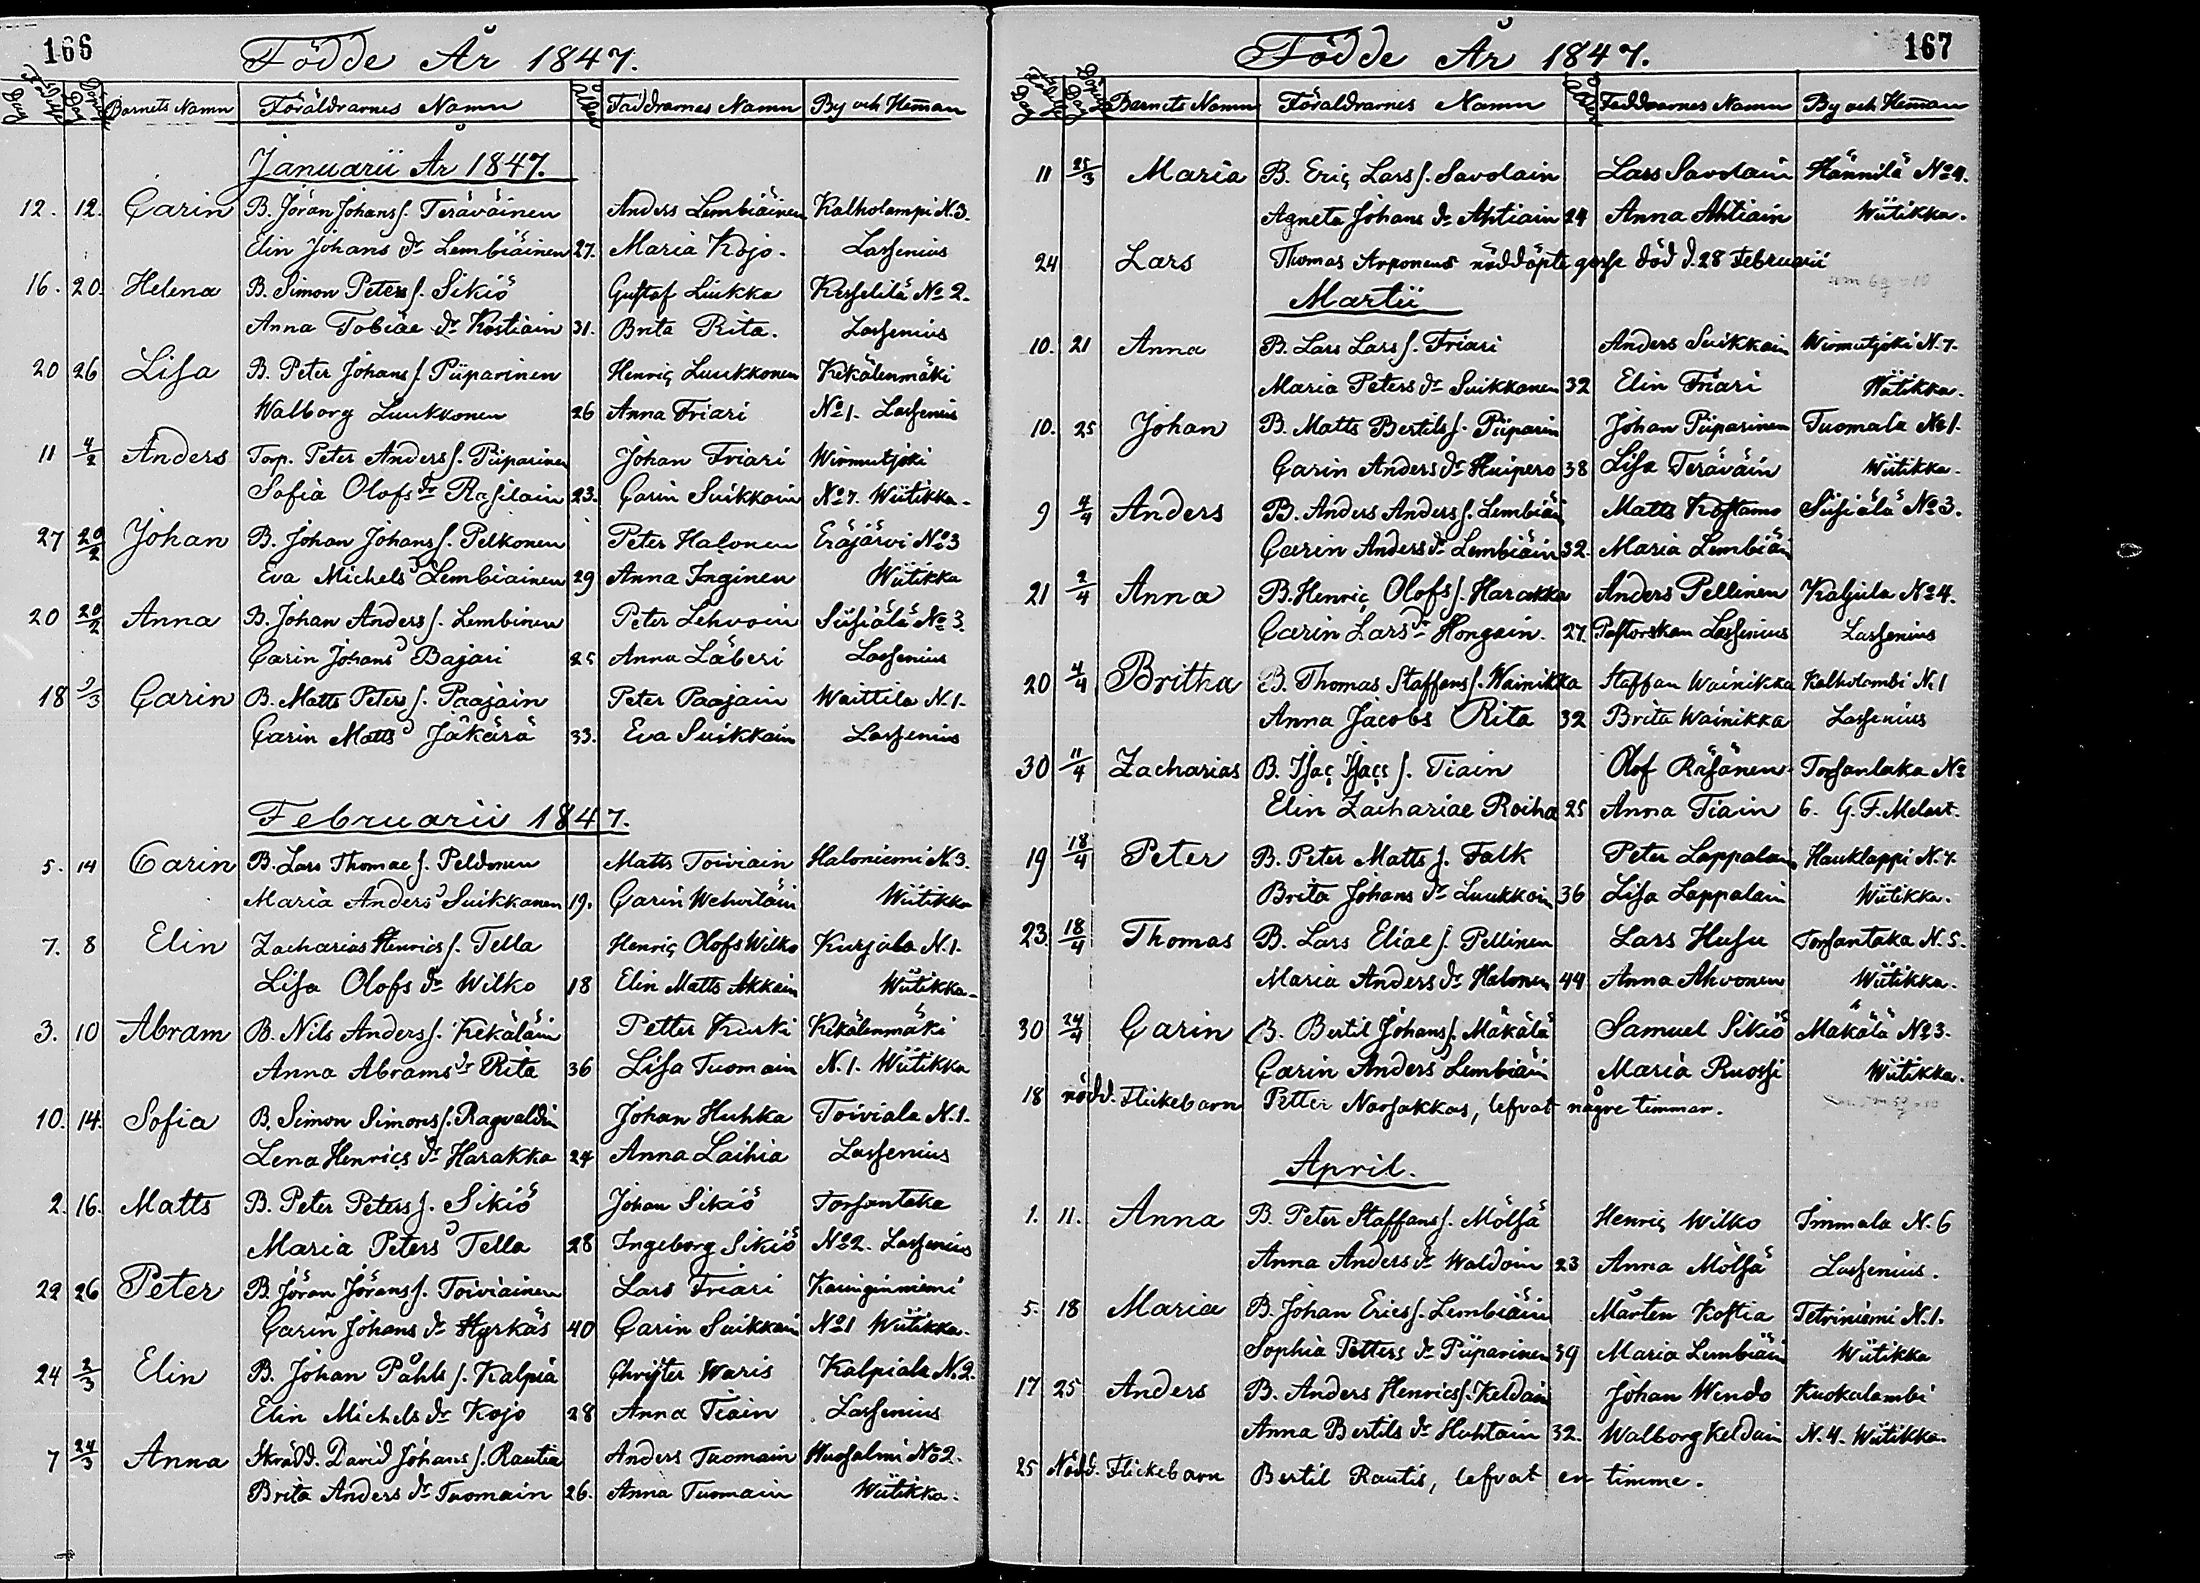 166
Födde År 1847.
Födelse Dag Döpelse Dag Barnets Namn Föräldrarnes Namn Ålder Faddrarnes Namn By och Hemman
Januarii År 1847.
12. 12. Carin B. Jöran Johans s. Teräväinen Anders Lembiäinen Kalholampi N. 3.
Elin Johans dr Lembiäinen 27. Maria Kojo. Lassenius
16. 20. Helena B. Simon Peters s. Sikiö Gustaf Liukka Kesselilä No 2.
Anna Tobiae dr Kostiain 31. Brita Rita. Lassenius
20 26 Lisa B. Peter Johans s. Piiparinen Henric Luukkonen Kekälenmäki
Walborg Luukkonen 26 Anna Friari No 1. Lassenius
11 4/2 Anders Torp. Peter Anders s. Piiparinen Johan Friari Wirmutjoki
Sofia Olofs dr Rasilain 23. Carin Suikkain No 7. Wiitikka.
27 20/2 Johan B. Johan Johans s. Pelkonen Peter Halonen Eräjärvi No 3
Eva Michels d Lembiainen 29 Anna Inginen Wiitikka
20 20/2 Anna B. Johan Anders s. Lembinen Peter Lehvoin Siisiälä No 3.
Carin Johans d Bajari 25 Anna Läberi Lassenius
18 2/3 Carin B. Matts Peters s. Paajain Peter Paajain Waittila N. 1.
Carin Matts d Jäkärä 33. Eva Suikkain Lassenius
Februarii 1847.
5. 14 Carin B. Lars Thomae s. Peldonen Matts Toiviain Haloniemi N. 3.
Maria Anders d Suikkanen 19. Carin Wehviläin Wiitikka
7. 8 Elin Zacharias Henrics s. Tella Henric Olofs Wilko Kurjala N. 1.
Lisa Olofs dr Wilko 18 Elin Matts Akkain Wiitikka.
3. 10 Abram B. Nils Anders s. Kekäläin Petter Kurki Kekälenmäki
Anna Abrams dr Rita 36 Lisa Tuomain N. 1. Wiitikka
10. 14. Sofia B. Simon Simons s. Ragvaldin Johan Huhka Toiviala N. 1.
Lena Henrics dr Harakka 24 Anna Laihia Lassenius
2. 16. Matts B. Peter Peters s. Sikiö Johan Sikiö Torsantaka
Maria Peters d Tella 28 Ingeborg Sikiö No 2. Lassenius
22 26 Peter B. Jöran Jörans s. Toiviainen Lars Friari Kaunginniemi
Carin Johans dr Hyrkäs 40 Carin Suikkain No 1 Wiitikka.
24 2/3 Elin B. Johan Påhls s. Kalpia Christer Waris Kalpiala N. 2.
Elin Michels dr Kojo 28 Anna Tiain Lassenius
7 24/3 Anna Skrädd. David Johans s. Rautia Anders Tuomain Huosalmi No 2.
Brita Anders dr Tuomain 26. Anna Tuomain Wiitikka.
167
Födde År 1847.
Födelse Dag Döpelse Dag Barnets Namn Föräldrarnes Namn Ålder Faddrarnes Namn By och Hemman
11 25/3 Maria B. Eric Lars s. Savolain Lars Savolain Hännilä No 4.
Agneta Johans dr Ahtiain 24 Anna Ahtiain Wiitikka.
24 Lars Thomas Arponens nöddöpte gosse död d. 28 Februarii
Martii
10. 21 Anna B. Lars Lars s. Friari Anders Suikkain Wirmutjoki N. 7.
Maria Peters dr Suikkanen 32 Elin Friari Wiitikka.
10. 25 Johan B. Matts Bertils s. Piiparin Johan Piiparinen Tuomala No 1.
Carin Anders dr Huipero 38 Lisa Teräväin Wiitikka.
9 4/4 Anders B. Anders Anders s. Lembiäi Matts Kostamo Siisiälä No 3.
Carin Anders dr Lembiäin 32. Maria Lembiäin
21 2/4 Anna B. Henric Olofs s. Harakka Anders Pellinen Kaljula No 4.
Carin Lars dr Hongain. 27. Pastorskan Lassenius Lassenius
20 4/4 Britha B. Thomas Staffans s. Wainikka Staffan Wainikka Kalholambi N. 1
Anna Jacobs Rita 32 Brita Wainikka Lassenius
30 11/4 Zacharias B. Isac Isacs s. Tiain Olof Räsänen Torsantaka No
Elin Zachariae Roiha 25 Anna Tiain 6. G. F. Melart.
19 18/4 Peter B. Peter Matts s. Falk Peter Lappalain Hauklappi N. 7.
Brita Johans dr Luukkain 36 Lisa Lappalain Wiitikka.
23. 18/4 Thomas B. Lars Eliae s. Pellinen Lars Husu Torsantaka N. 5.
Maria Anders dr Halonen 44 Anna Ahvonen Wiitikka.
30 24/4 Carin B. Bertil Johans s. Mäkälä Samuel Sikiö Mäkälä No 3.
Carin Anders d Lembiäin Maria Ruossi Wiitikka.
18 nödd. Flickebarn Petter Narsakkas, lefvat någre timmar.
April.
1. 11. Anna B. Peter Staffans s. Mölsä Henric Wilko Immala N. 6
Anna Anders dr Waldoin 23 Anna Mölsä Lassenius.
5. 18 Maria B. Johan Erics s. Lembiäin Mårten Kostia Tetriniemi N. 1.
Sophia Petters dr Piiparinen 39 Maria Lembiäin Wiitikka
17 25 Anders B. Anders Henrics s. Keldain Johan Wendo Kuokalambi
Anna Bertils dr Huhtain 32. Walborg Keldain N. 4. Wiitikka.
25 Nödd. Flickebarn Bertil Rautis, lefvat en timme.